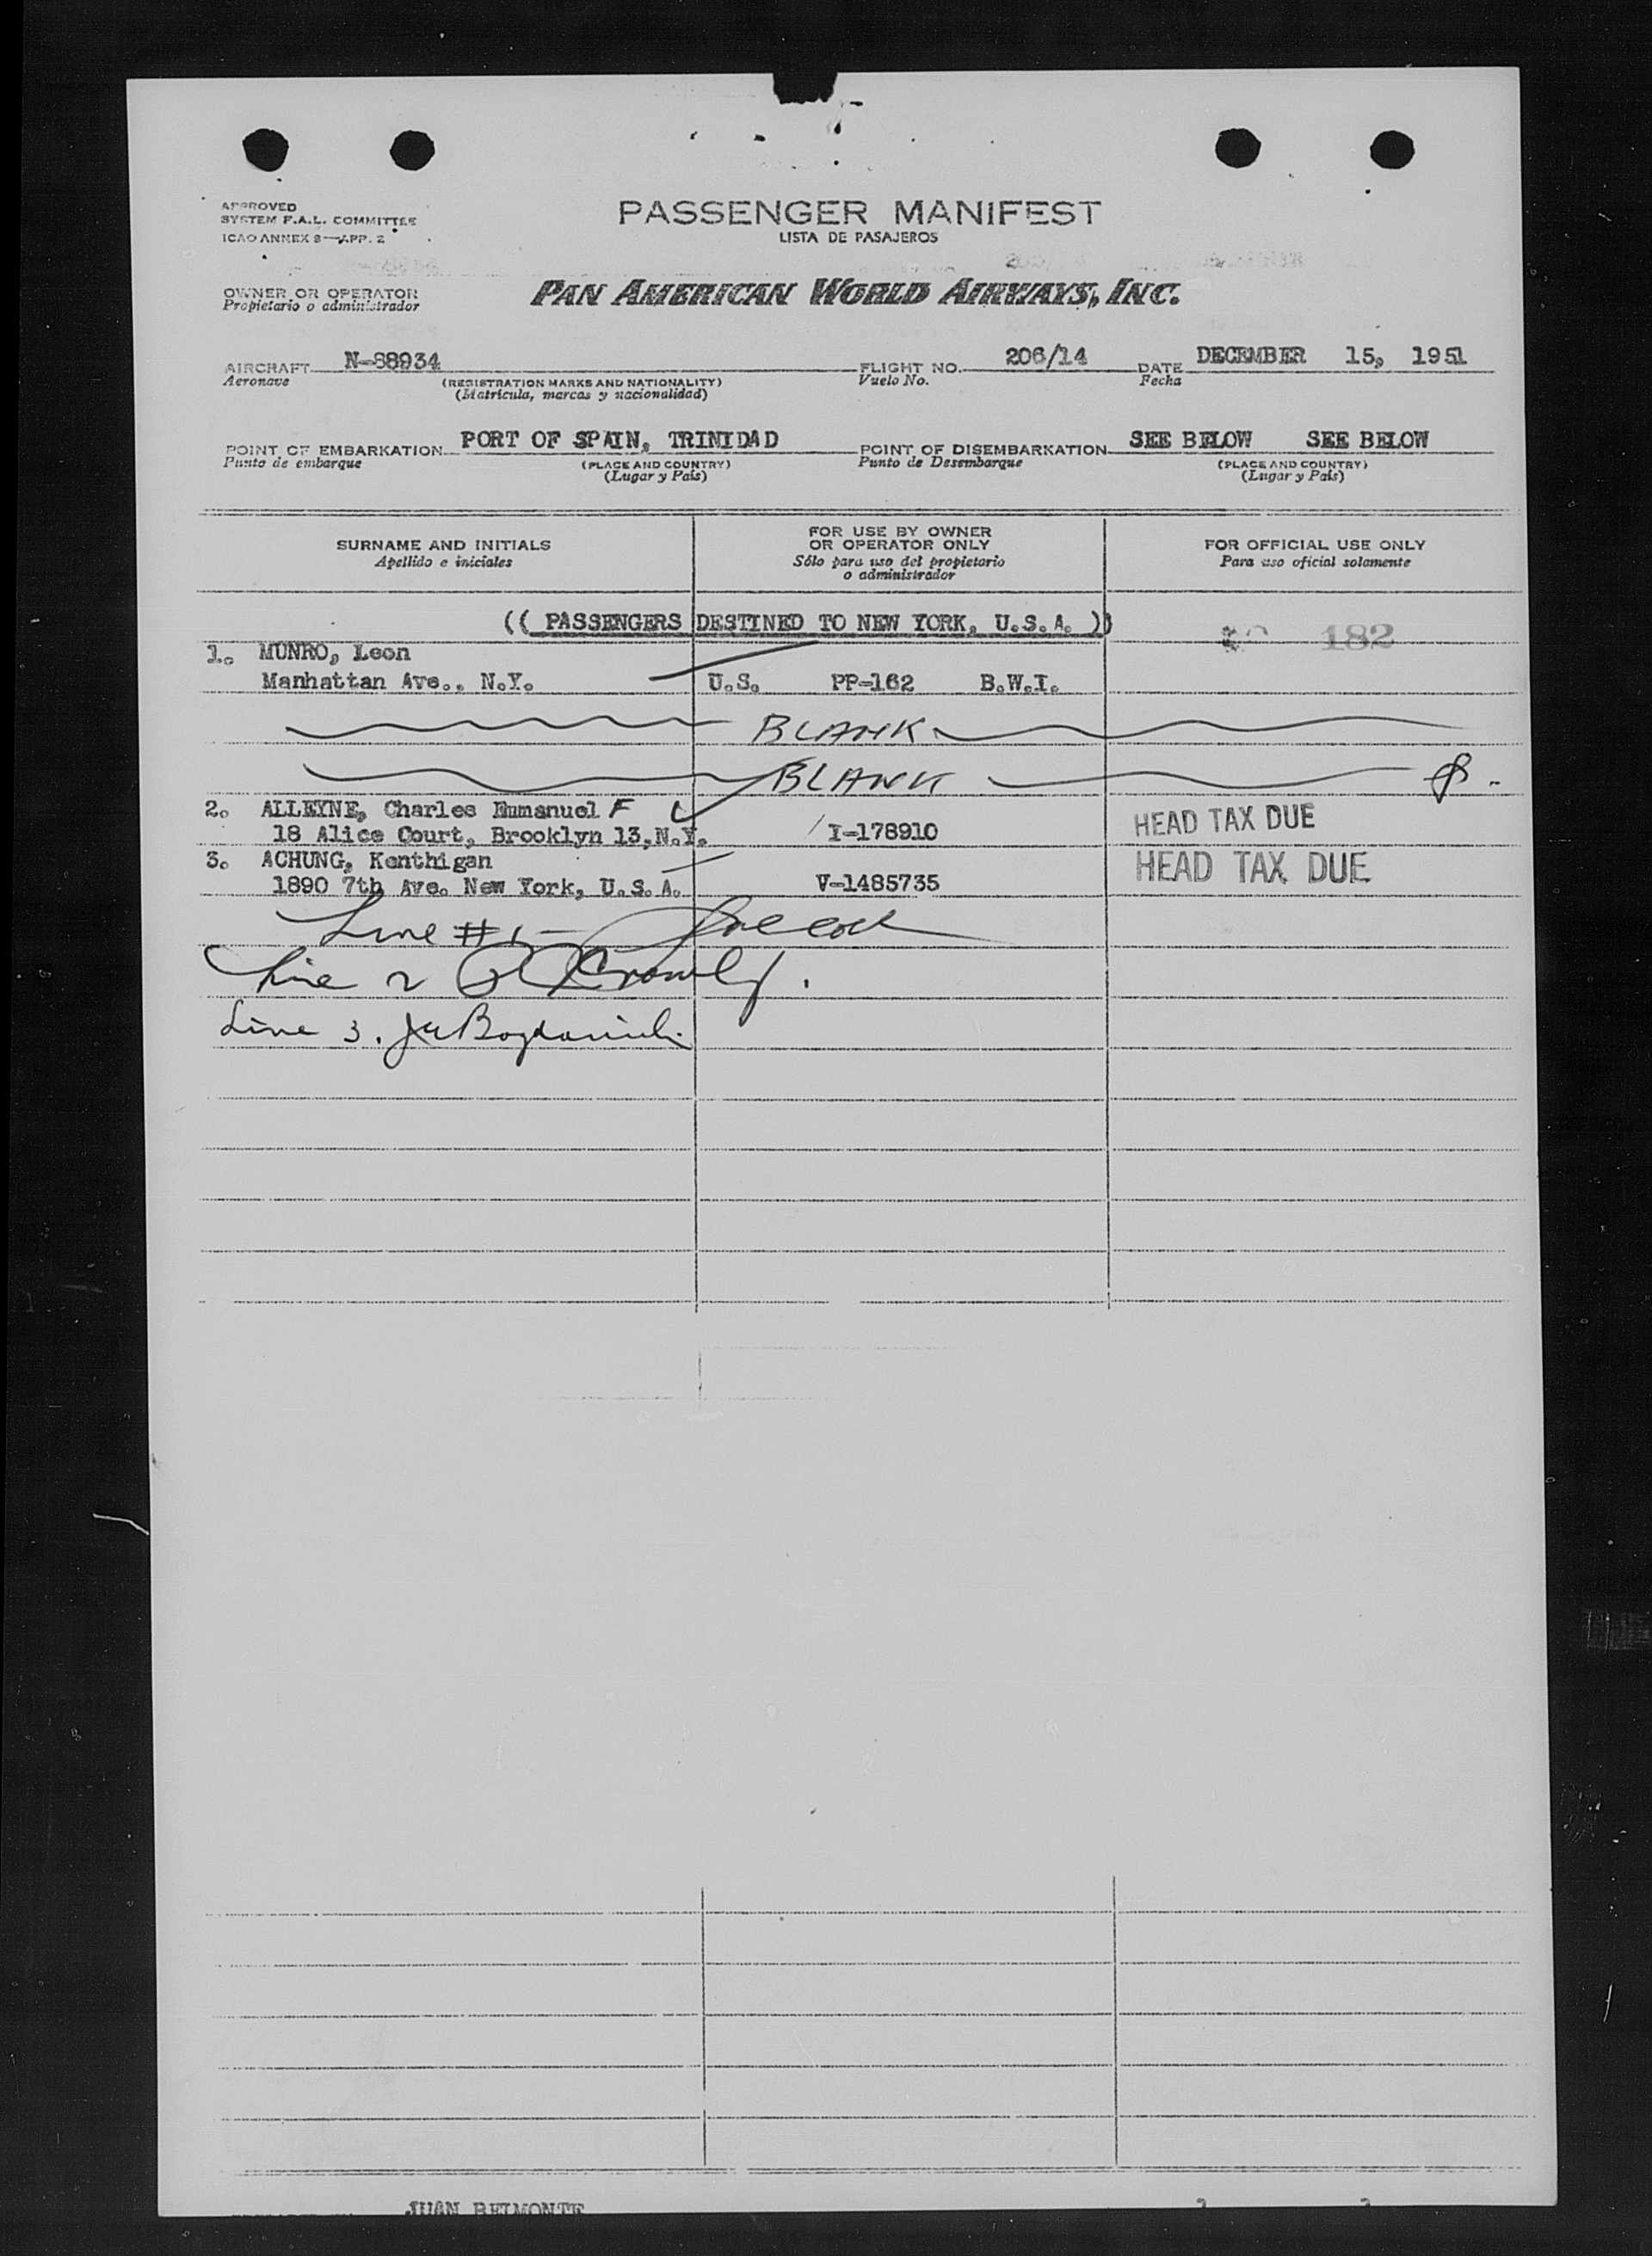 APPROVED
SYSTEM F.A.L. COMMITTEE
ICAO ANNEX 9—APP. 2
PASSENGER MANIFEST
LISTA DE PASAJEROS
OWNER OR OPERATOR
Propietario o administrador
PAN AMERICAN WORLD AIRWAYS, INC.
AIRCRAFT N-88934 FLIGHT NO. 206/14 DATE DECEMBER 15, 1951
Aeronave (REGISTRATION MARKS AND NATIONALITY) Vuelo No. Fecha
(Matrícula, marcas y nacionalidad)
POINT OF EMBARKATION PORT OF SPAIN, TRINIDAD POINT OF DISEMBARKATION SEE BELOW SEE BELOW
Punto de embarque (PLACE AND COUNTRY) Punto de Desembarque (PLACE AND COUNTRY)
(Lugar y País) (Lugar y País)
SURNAME AND INITIALS
Apellido e iniciales
FOR USE BY OWNER
OR OPERATOR ONLY
Sólo para uso del propietario
o administrador
FOR OFFICIAL USE ONLY
Para uso oficial solamente
(( PASSENGERS DESTINED TO NEW YORK, U.S.A. ))
182
1. MUNRO, Leon
Manhattan Ave., N.Y. U.S. PP-162 B.W.I.
BLANK
BLANK
2. ALLEYNE, Charles Emmanuel F
18 Alice Court, Brooklyn 13, N.Y. I-178910 HEAD TAX DUE
3. ACHUNG, Kenthigan
1890 7th Ave. New York, U.S.A. V-1485735 HEAD TAX DUE
Line #1 -
Line 2
Line 3.
JUAN BELMONTE